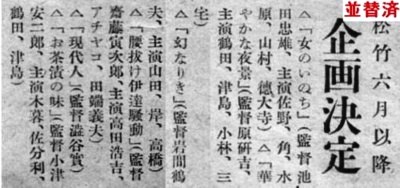 並替済
松竹六月以降
企画決定
△「女のいのち」(監督池
田忠雄、主演佐野、角、水
原、山村、徳大寺)△「華
やかな夜景」(監督原研吉、
主演鶴田、津島、小林、三
宅)
△「幻なりき」(監督岩間鶴
夫、主演山田、岸、高橋)
△「腰抜け伊達騒動」(監督
齋藤寅次郎、主演高田浩吉、
アチヤコ、田端義夫)
△「現代人」(監督澁谷實)
△「お茶漬の味」(監督小津
安二郎、主演木暮、佐分利、
鶴田、津島)